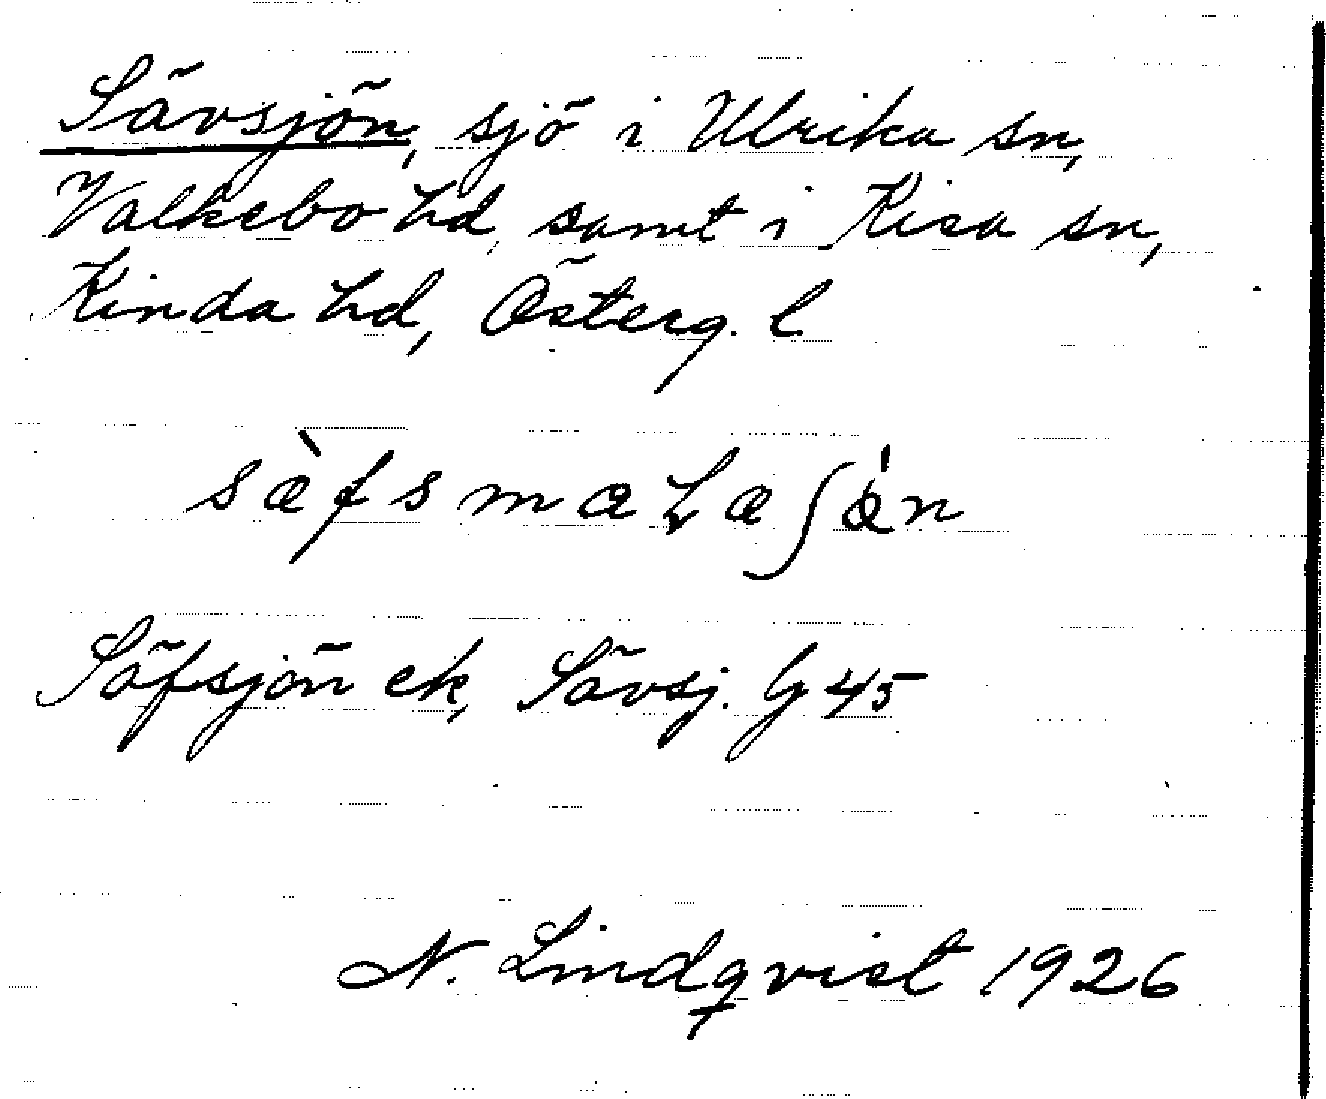 Sävsjön, sjö i Ulrika sn,
Valkebo hd, samt i Kisa sn,
Kinda hd, Österg. l
Säfsjön ek, Sävsj. G 45
N. Lindqvist 1926